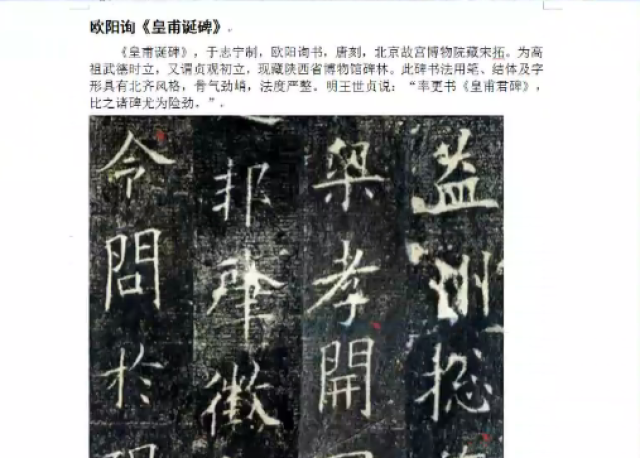 欧阳询《皇甫诞碑》。
《皇甫诞碑》，于志宁制，欧阳询书，唐刻，北京故宫博物院藏宋拓。为高
祖武德时立，又谓贞观初立，现藏陕西省博物馆碑林。此碑书法用笔、结体及字
形具有北齐风格，骨气劲峭，法度严整。明王世贞说：“率更书《皇甫君碑》，
比之诸碑尤为险劲。”.
益州总
梁孝開
邦肇徽
令問於